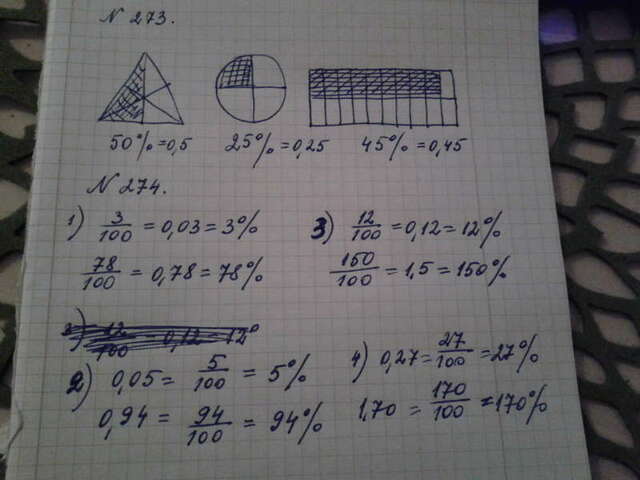 N 273.
50% = 0,5   25% = 0,25   45% = 0,45
N 274.
1) 3/100 = 0,03 = 3%
78/100 = 0,78 = 78%
3) 12/100 = 0,12 = 12%
150/100 = 1,5 = 150%
2) 12/100 = 0,12 = 12%
2) 0,05 = 5/100 = 5%
0,94 = 94/100 = 94%
4) 0,27 = 27/100 = 27%
1,70 = 170/100 = 170%